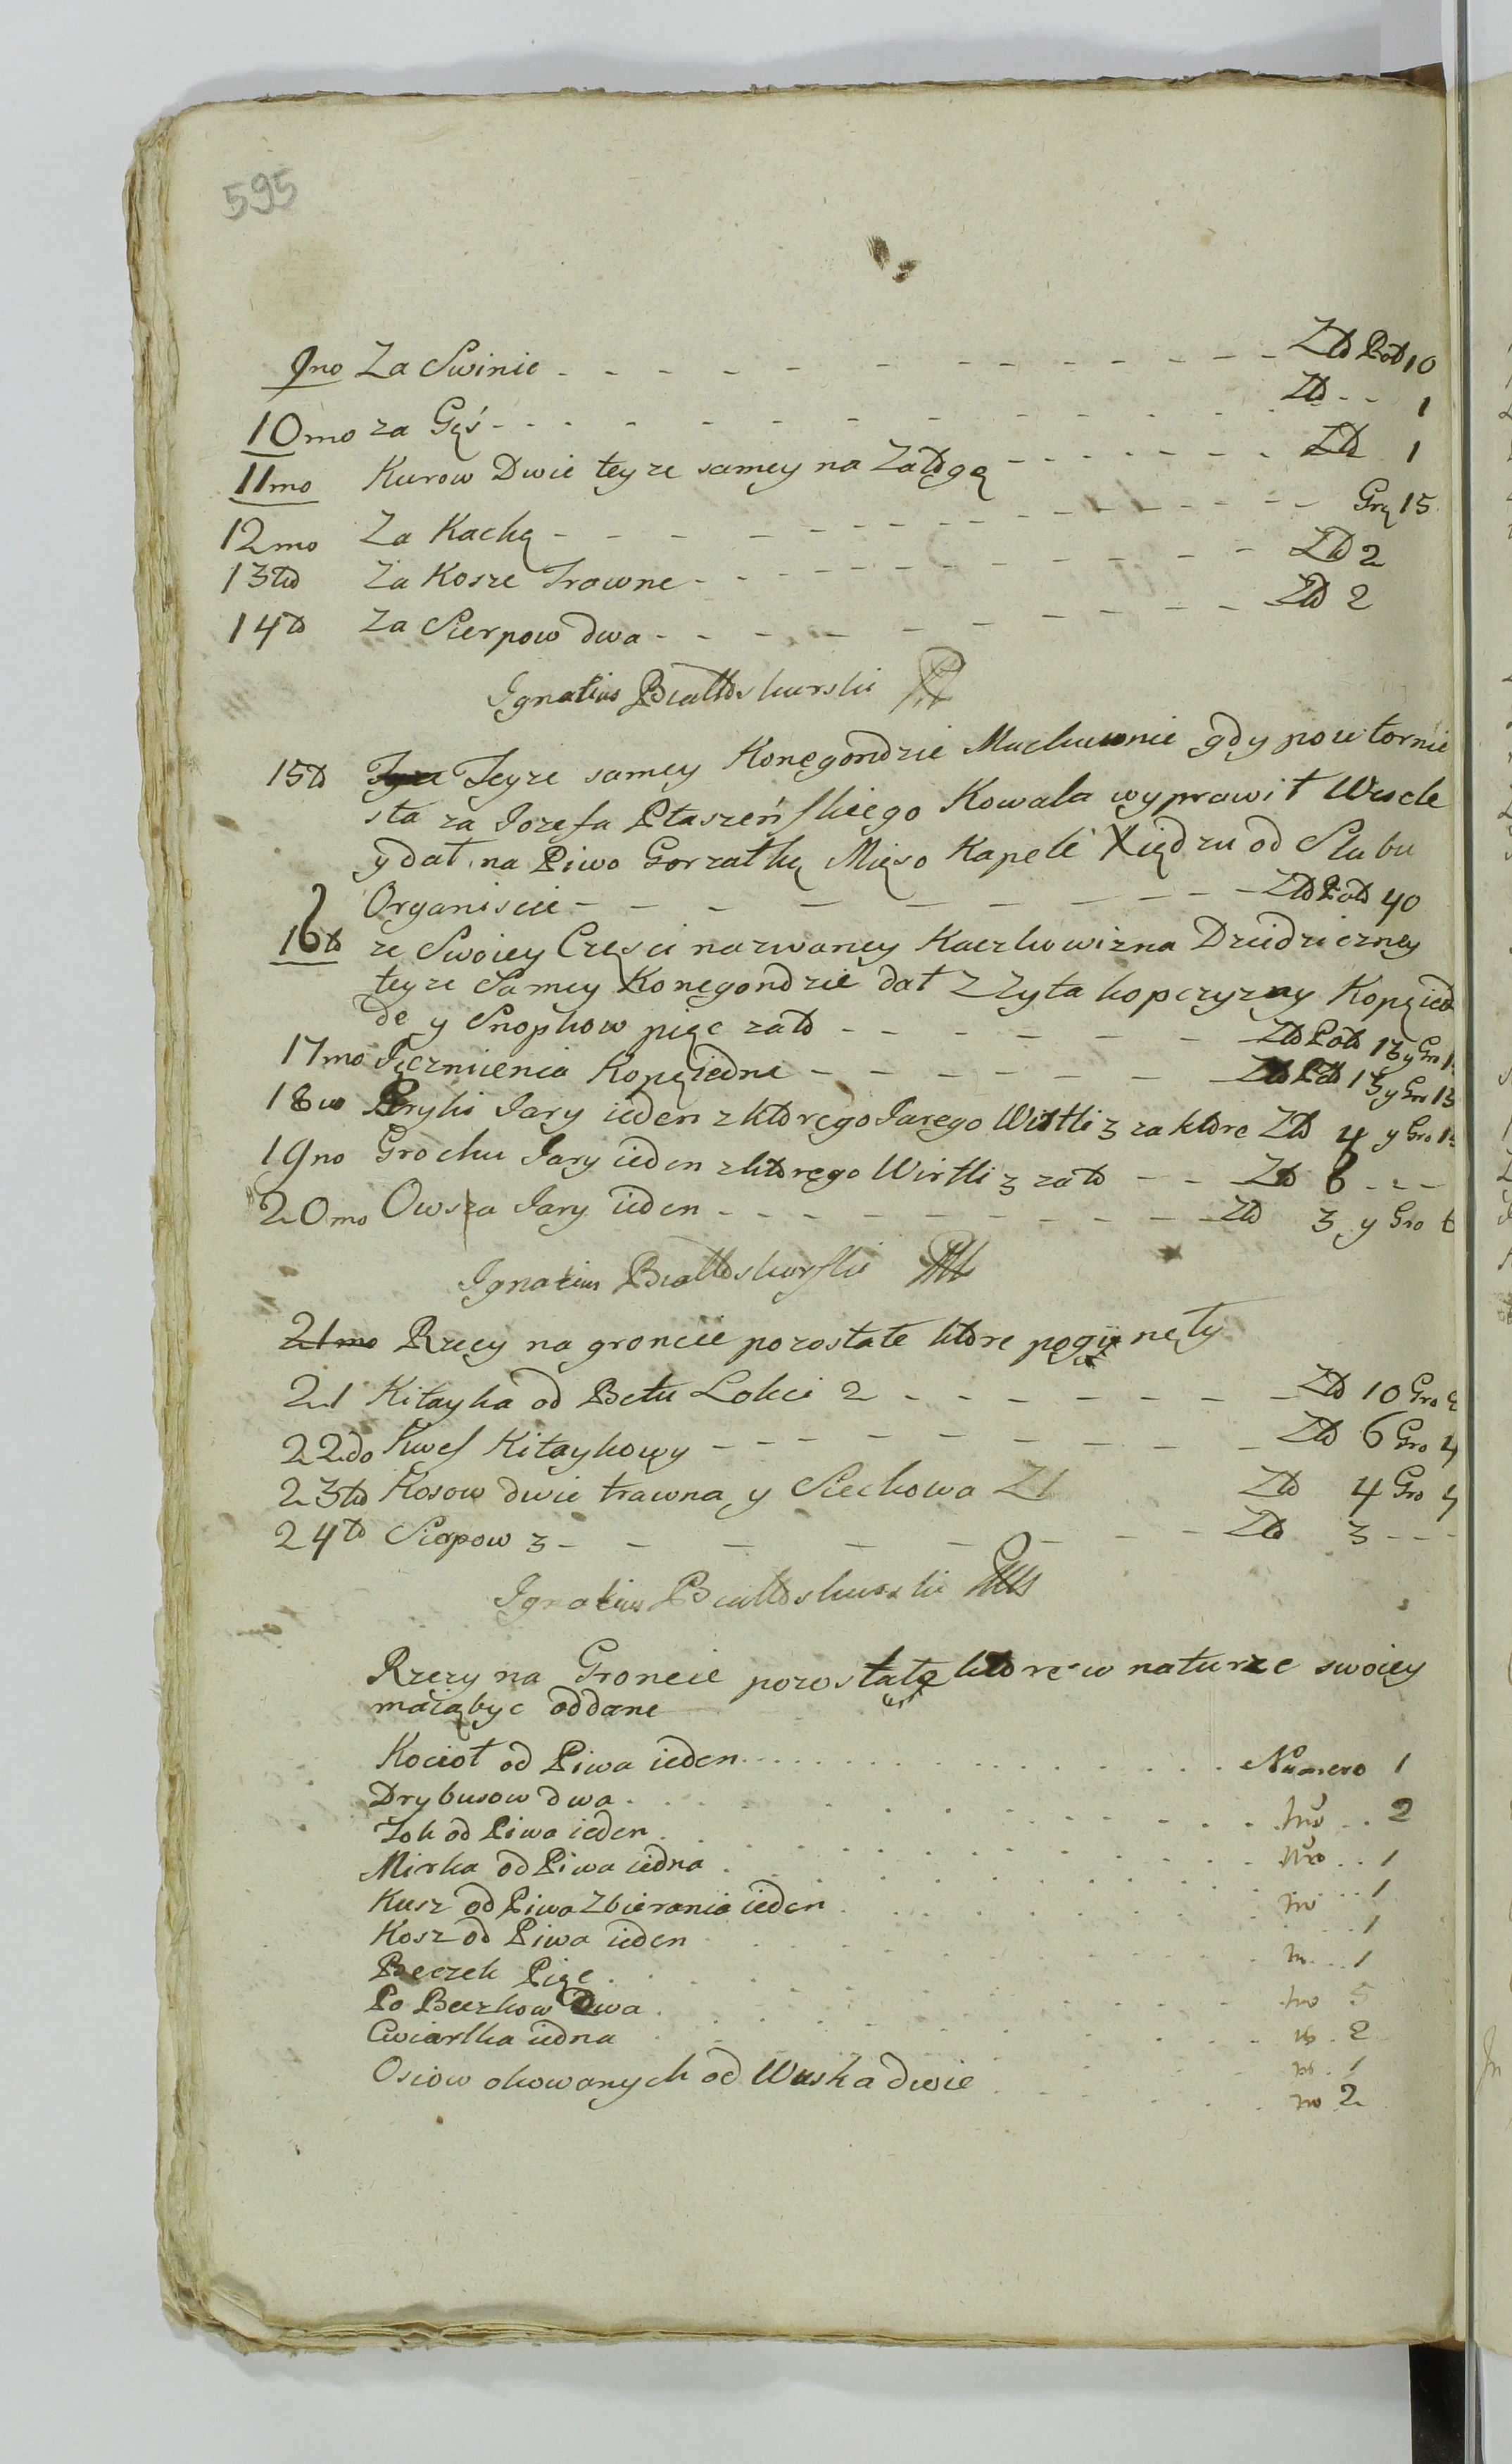 595
9no Za Swinie - - - - - - - - - - Zło Pol 10
10mo za Gęś - - - - - - - - - - Zło - - 1
11mo Kurow Dwie teyze samey na Załogę - - - - - - Zło 1
12mo Za Kachę - - - - - - - - - - Grę 15
13tio Za Kosze Trawne - - - - - - - - - - Zło 2
14to Za Sierpow dwa - - - - - - - - - - Zło 2
Ignatius Białloskurski
15to Teyze samey Konegondzie Muchuwnie gdy powtornie
sła za Jozefa Płaszeńskiego Kowala wyprawił Wesele
y dał na Piwo Gorzałkę Mięso Kapele Xiędzu od Slubu
Organiscie - - - - - - - - Zło Pol 40
16to ze Swoiey Częsci nazwaney Kaczkowizna Dziedziczney
teyze Samey Konegondzie dał Zżyta kopczyzny Kopę ied
de y Snopkow pięc zato - - - - - - Zło Pol 13 y Gro 1
17mo Ięczmienia Kopę iedne - - - - - - - Zło Pol 13 y Gro 15
18vo Pryki Jary ieden z ktorego Jarego Wirtli 3 za ktore Zło 4 y Gro 1
19no Grochu Jary ieden z ktorego Wirtli 3 zato - - Zło 6 - - -
20mo Owsza Jary ieden - - - - - - - - - Zło 3 y Gro 6
Ignatius Białloskurski
21mo Rzecy na groncie pozostałe ktore pogynęły
21 Kitayka od Betu Lokci 2 - - - - - - - - Zło 10 Gro
22do Kwef Kitaykowy - - - - - - - - - - Zło 6 Gro 4
23tio Kosow dwie trawna y Sieckowa Zł Zło 4 Gro 4
24to Sierpow 3 - - - - - - - - Zło 3 - - -
Ignatius Białloskurski
Rzezy na Groncie pozostałę ktore w naturze swoiey
maią byc oddane
Kocioł od Piwa ieden . . . . . . . . . . Numero 1
Drybusow dwa . . . . . . . . . . Nro . . 2
Zok od Piwa ieden . . . . . . . . . . Nro . . 1
Mirka od Piwa iedna . . . . . . . . . . no . . . 1
Kusz od Piwa Zbierania ieden . . . . . . . . . . 1
Kosz od Piwa ieden . . . . . . . . . . no . . . 1
Beczek Pięc . . . . . . . . . . no 5
Po Beczkow Dwa . . . . . . . . . . no . 2
Cwiartka iedna . . . . . . . . . . no . 1
Osiow okowanych od Wuska dwie . . . . . . no 2